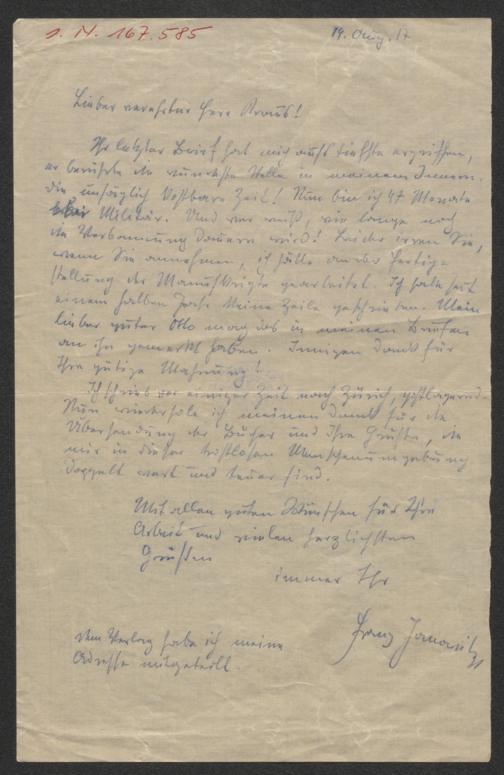 J. N. 167.585
19. Aug. 17
Lieber verehrter Herr Kraus!
Ihr letzter Brief hat mich aufs tiefste ergriffen,
er berührte die wundeste Stelle in meinem Innern.
die unsäglich kostbare Zeit! Nun bin ich 47 Monate
beim Militär. Und wer weiß, wie lange noch
die Verbannung dauern wird! Leider irren Sie,
wenn Sie annehmen, ich hätte an der Fertig-
stellung des Manuskripts gearbeitet. Ich habe seit
einem halben Jahr keine Zeile geschrieben. Mein
lieber guter Otto mag das in meinen Briefen
an ihn gemerkt haben. Innigen Dank für
Ihre gütige Mahnung!
Ich schrieb vor einiger Zeit nach Zürich, postlagernd.
Nun wiederhole ich meinen Dank für die
Übersendung der Bücher und Ihre Grüße, die
mir in dieser trostlosen Menschenumgebung
doppelt wert und teuer sind.
Mit allen guten Wünschen für Ihre
Arbeit und vielen herzlichsten
Grüßen
immer Ihr
Franz Janowitz
Dem Verlag habe ich meine
Adresse mitgeteilt.